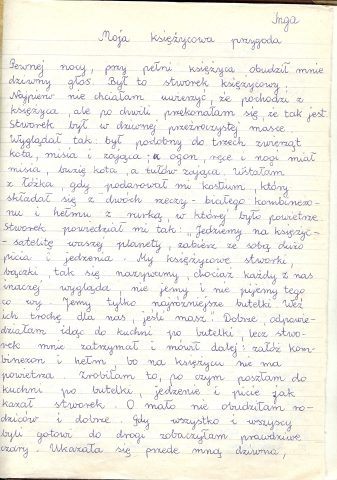 Inga
Moja księżycowa przygoda
Pewnej nocy, przy pełni księżyca obudził mnie
dziwny głos. Był to stworek księżycowy.
Najpierw nie chciałam uwierzyć, że pochodzi z
księżyca, ale po chwili przekonałam się że tak jest.
Stworek był w dziwnej przeźroczystej masce.
Wyglądał tak: był podobny do trzech zwierząt
kota, misia i zająca; a ogon, ręce i nogi miał
misia, buzię kota, a tułów zająca. Wstałam
z łóżka, gdy podarował mi kostium, który
składał się z dwóch rzeczy - białego kombinezo-
nu i hełmu z rurką, w której było powietrze
Stworek powiedział mi tak: "Jedziemy na księżyc-
-satelitę waszej planety, zabierz ze sobą dużo
picia i jedzenia. My księżycowe stworki,
bączki tak się nazywamy, chociaż każdy z nas
inaczej wygląda nie jemy i nie pijemy tego
co wy. Jemy tylko najróżniejsze butelki. Weź
ich trochę dla nas, jeśli masz". Dobrze odpowie-
działam idąc do kuchni po butelki, lecz stwo-
rek mnie zatrzymał i mówił dalej: załóż kom-
binezon i hełm, bo na księżycu nie ma
powietrza. Zrobiłam to, po czym poszłam do
kuchni po butelki, jedzenie i picie jak
kazał stworek. O mało nie obudziłam ro-
dziców i dobrze. Gdy wszystko i wszyscy
byli gotowi do drogi zobaczyłam prawdziwe
czary. Ukazała się przede mną dziwna,